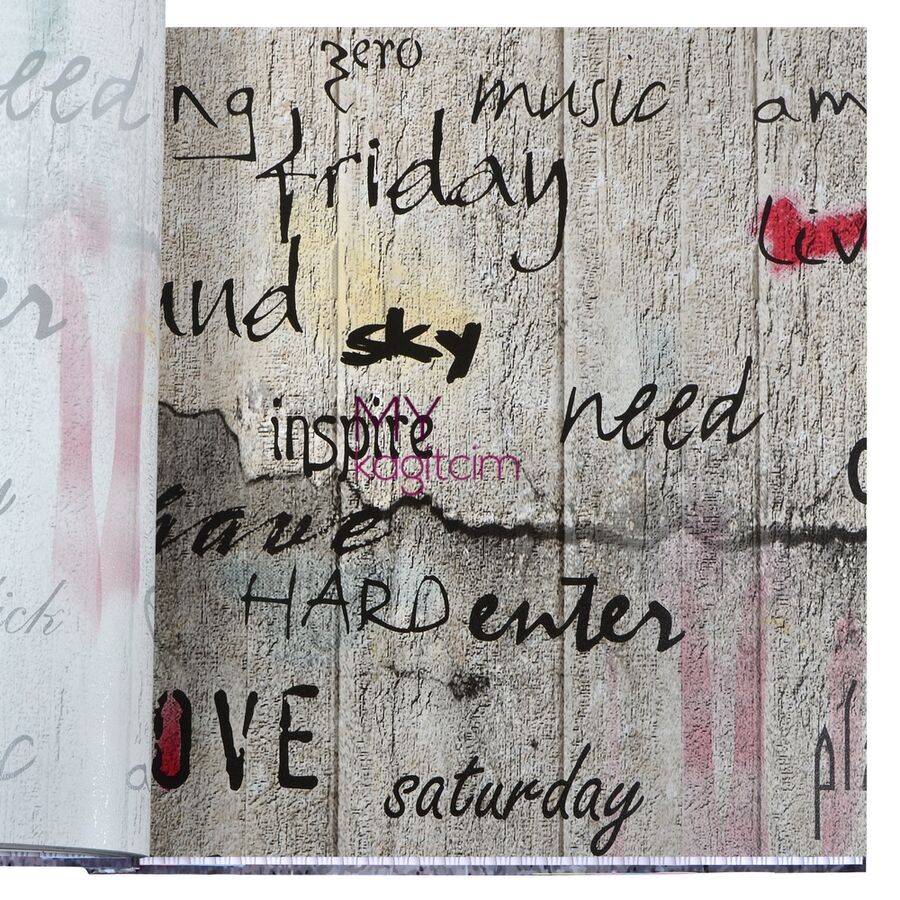 zero
eed
ng
music
am
friday
liv
und
er
sky
need
inspire
MY
kagitcim
have
HARD
enter
ick
OVE
saturday
pl